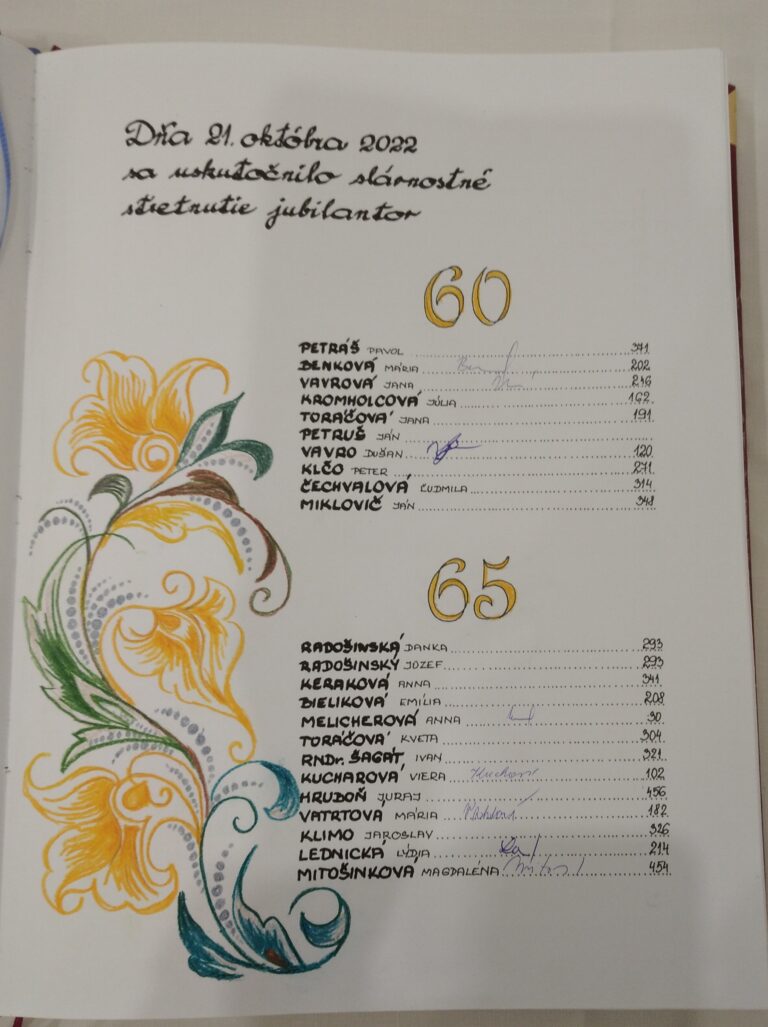 Dňa 21. októbra 2022
sa uskutočnilo slávnostné
stretnutie jubilantov
60
PETRÁŠ PAVOL 371
BENKOVÁ MÁRIA 202
VAVROVÁ JANA 246
KROMHOLCOVÁ JÚLIA 162
TORÁČOVÁ JANA 191
PETRUŠ JÁN
VAVRO DUŠAN 120
KLČO PETER 271
ČECHVALOVÁ ĽUDMILA 314
MIKLOVIČ JÁN 348
65
RADOŠINSKÁ DANKA 293
RADOŠINSKÝ JOZEF 293
KERAKOVÁ ANNA 341
BIELIKOVÁ EMÍLIA 208
MELICHEROVÁ ANNA 30
TORÁČOVÁ KVETA 304
RNDr. ŠAGÁT IVAN 321
KUCHAROVÁ VIERA 102
HRUDOŇ JURAJ 456
VATRTOVA MÁRIA 182
KLIMO JAROSLAV 326
LEDNICKÁ LÝDIA 214
MITOŠINKOVA MAGDALÉNA 454